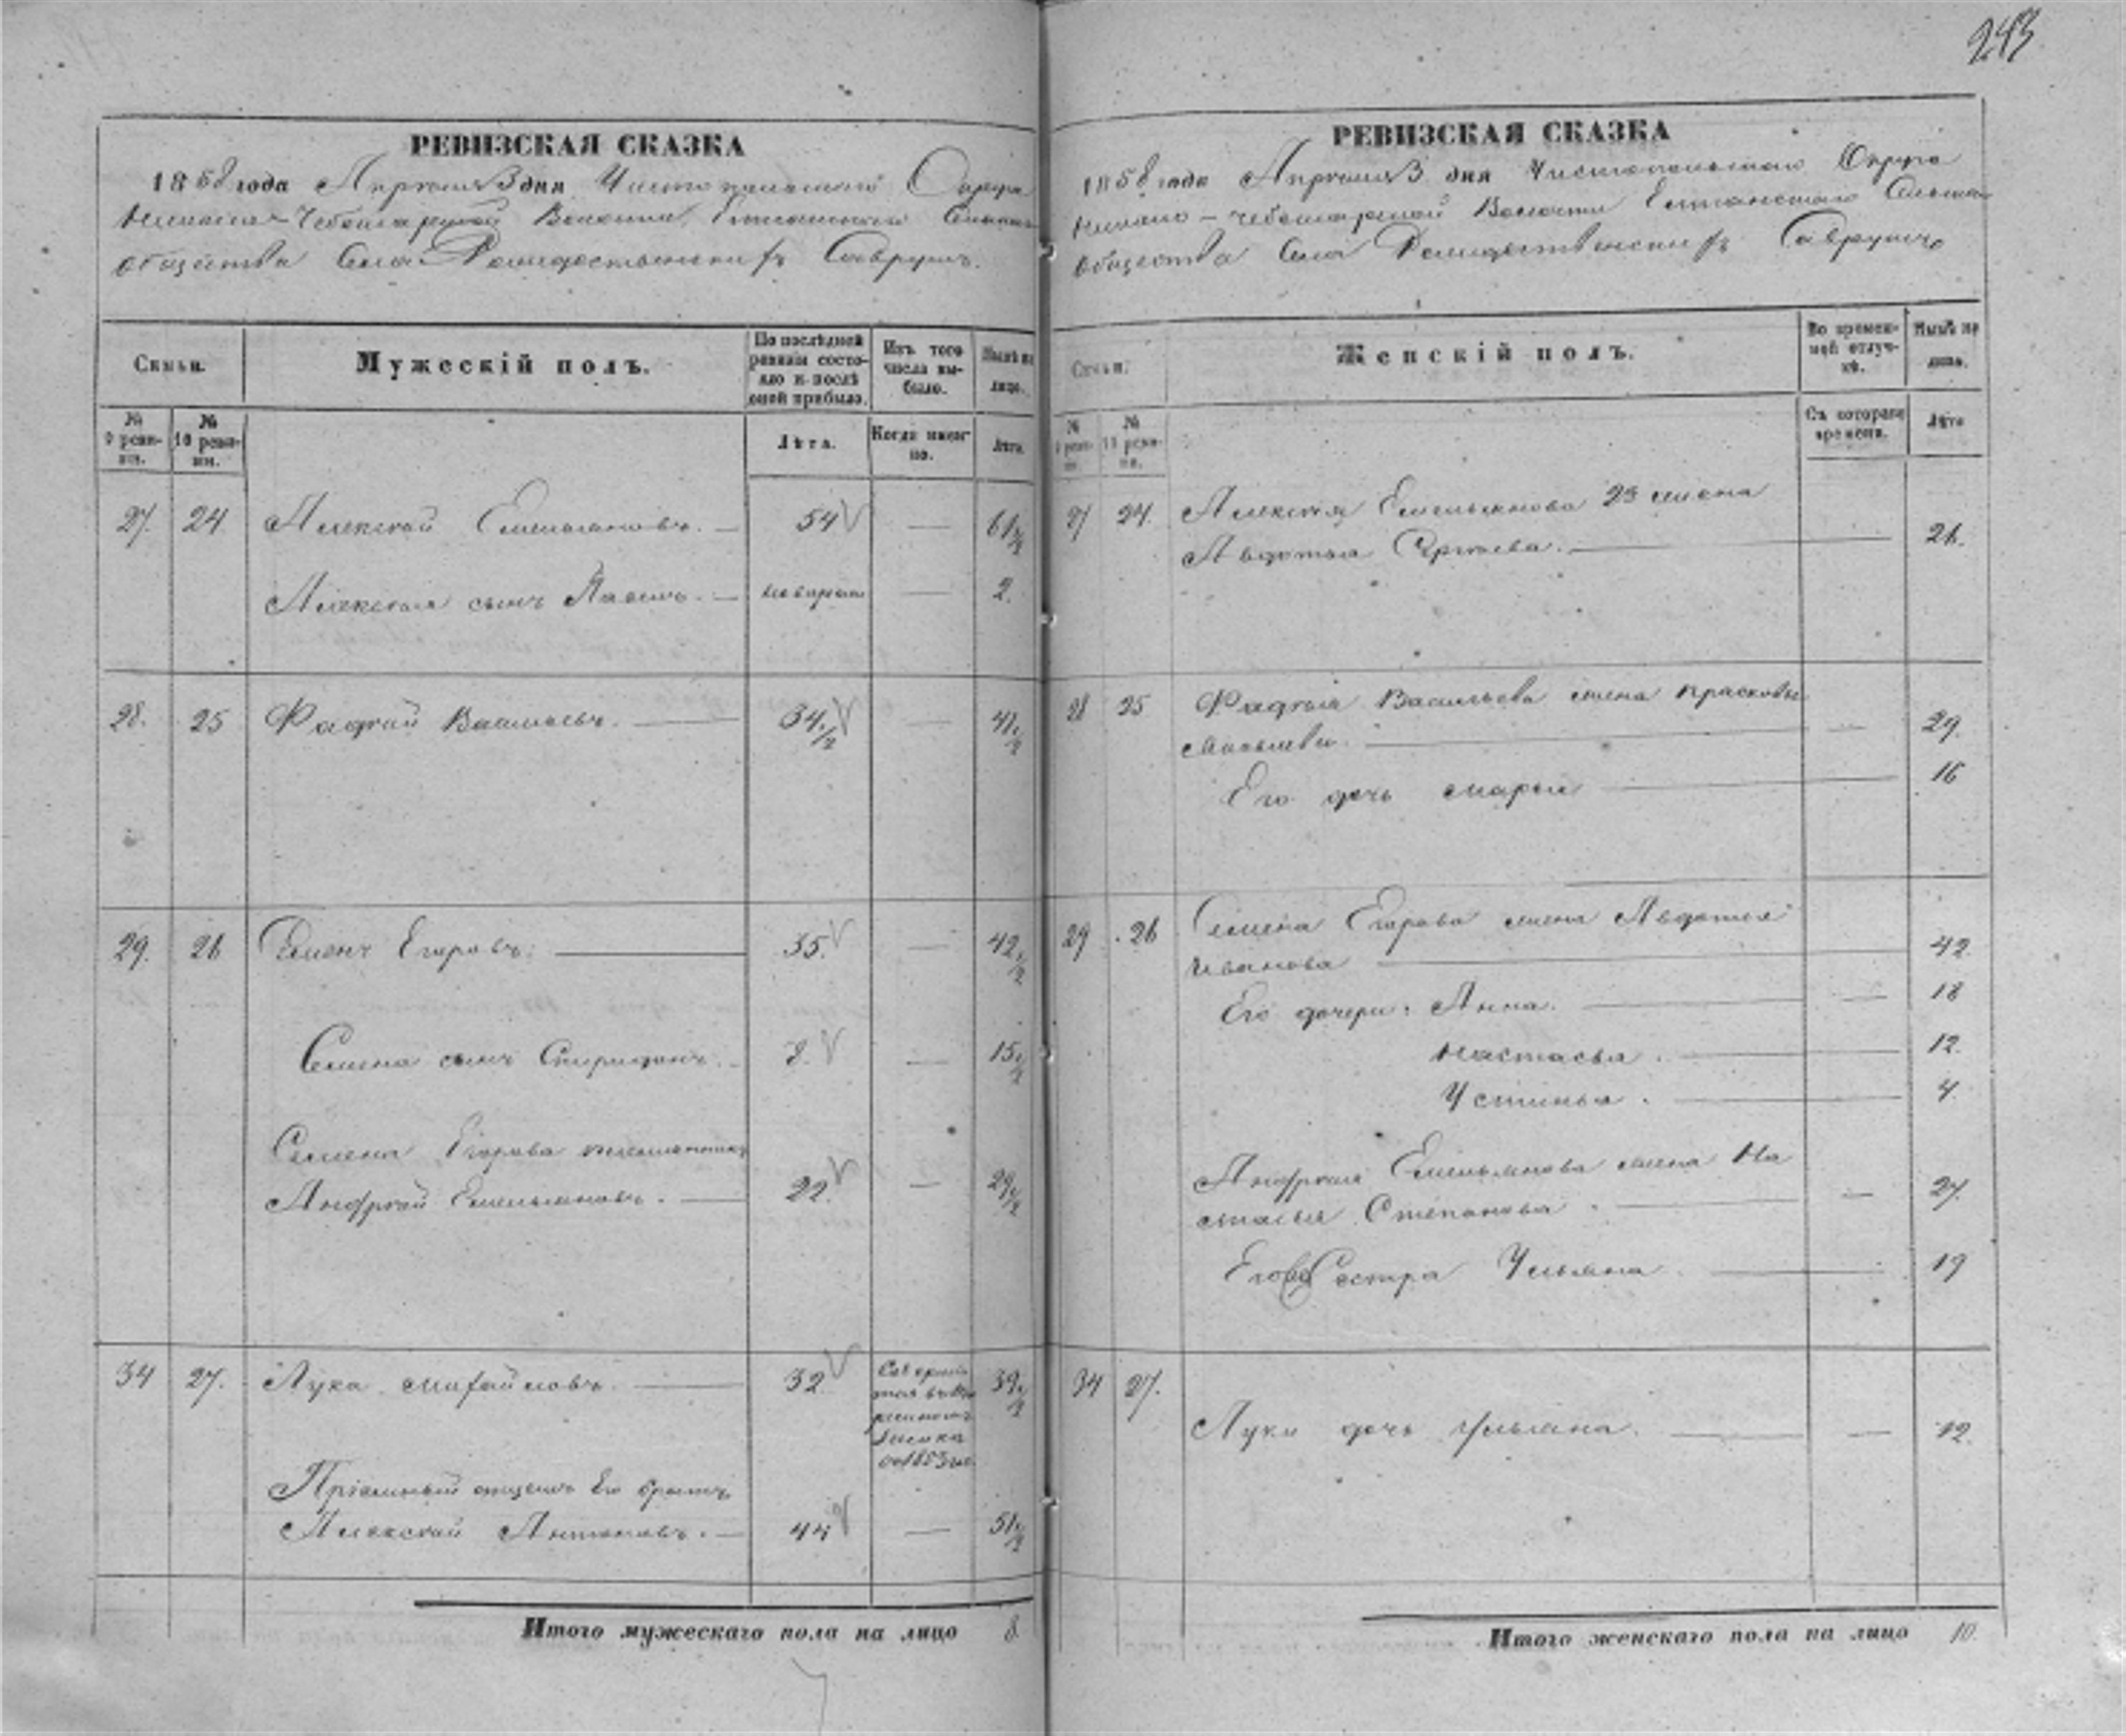 243
РЕВИЗСКАЯ СКАЗКА
1858 года Апреля 3 дня Чистопольскаго Округа
Чебоксарской Волости
общества Села Рождественских Савруш.
Семьи.
Мужескій полъ.
По послѣдней ревизіи состояло и послѣ оной прибыло.
Изъ того числа выбыло.
Нынѣ на лицо.
№ 9 ревизіи.
№ 10 ревизіи.
Лѣта.
Когда именно.
Лѣта.
27. 24 Алексей Емельяновъ. — 54 — 61½
Алексея сынъ — — 2.
28. 25 Фадей Васильевъ. — 34½ — 41½
29. 26 Семенъ Егоровъ: — 35. — 42½
Семена сынъ Спиридонъ. — 8. — 15½
Семена Егорова племянникъ
Андрей Емельяновъ. — 22. — 29½
34 27. Лука Михайловъ. — 32 39½
Пріемный отцемъ Его братъ
Алексей Антоновъ. — 44 — 51½
Итого мужескаго пола на лицо 8
РЕВИЗСКАЯ СКАЗКА
1858 года Апреля 3 дня Чистопольскаго Округа
Волости
общества Села Рождественских Савруш
Семьи.
Женскій полъ.
Во временной отлучкѣ.
Нынѣ на лицо.
№ 9 ревизіи.
№ 10 ревизіи.
Съ котораго времени.
Лѣта
27 24. Алексея Емельянова 2й жена
Авдотья Сергеева. — 26.
28 25 Фадея Васильева жена Прасковья
— — 29.
Его дочь Марья — 16
29 26 Семена Егорова жена Авдотья
Иванова — 42.
Его дочери: Анна. — — 18
Настасья. — 12.
Устинья. — 4.
Андрея Емельянова жена На
стасья Степанова. — — 27.
Его Сестра Ульяна. — 19
34 27. Луки дочь Ульяна. — — 12.
Итого женскаго пола на лицо 10.